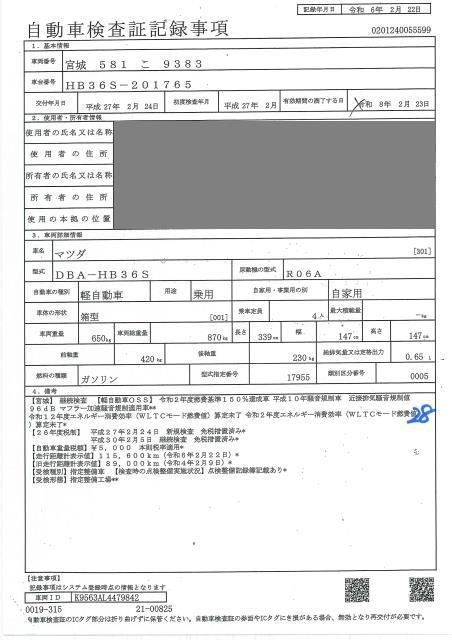 記録年月日 令和 6年 2月 22日
自動車検査証記録事項
0201240055599
1. 基本情報
車両番号 宮城 581 こ 9383
車台番号 HB36S-201765
交付年月日 平成 27年 2月 24日 初度検査年月 平成 27年 2月 有効期間の満了する日 令和 8年 2月 23日
2. 使用者・所有者情報
使用者の氏名又は名称
使用者の住所
所有者の氏名又は名称
所有者の住所
使用の本拠の位置
3. 車両詳細情報
車名 マツダ [301]
型式 DBA-HB36S 原動機の型式 R06A
自動車の種別 軽自動車 用途 乗用 自家用・事業用の別 自家用
車体の形状 箱型 [001] 乗車定員 4人 最大積載量 -kg
車両重量 650kg 車両総重量 870kg 長さ 339cm 幅 147cm 高さ 147cm
前軸重 420kg 後軸重 230kg 総排気量又は定格出力 0.65 L
燃料の種類 ガソリン 型式指定番号 17955 類別区分番号 0005
4. 備考
[宮城] 継続検査 [軽自動車OSS] 令和2年度燃費基準150%達成車 平成10年騒音規制車 近接排気騒音規制値
96dB マフラー加速騒音規制適用車**
令和12年度エネルギー消費効率(WLTCモード燃費値)算定未了 令和2年度エネルギー消費効率(WLTCモード燃費値
)算定未了* 28
[26年度税制] 平成27年2月24日 新規検査 免税措置済み*
平成30年2月5日 継続検査 免税措置済み*
[自動車重量税額]¥5,000 本則税率適用*
[走行距離計表示値]115,600km(令和6年2月22日)*
[旧走行距離計表示値]89,000km(令和4年2月9日)*
[受検種別]指定整備車 [検査時の点検整備実施状況]点検整備記録簿記載あり*
[受検形態]指定整備工場**
[注意事項]
記録事項はシステム登録時点の情報となります
車両ID K9563AL4479842
0019-315 21-00825
自動車検査証のICタグ部分は折り曲げずに保管ください。自動車検査証の券面やICタグにき損がある場合、無効となり再交付が必要です。